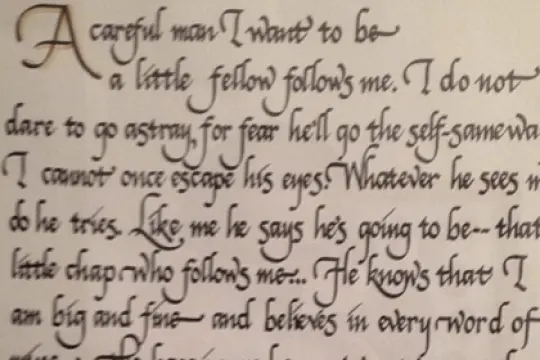 A careful man I want to be
a little fellow follows me. I do not
dare to go astray, for fear he'll go the self-same wa
I cannot once escape his eyes. Whatever he sees m
do he tries. Like me he says he's going to be-- that
little chap who follows me... He knows that I
am big and fine and believes in every word of